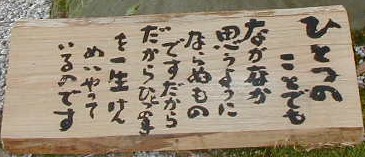 ひとつの
ことでも
なか庭か
思うように
ならぬもの
ですだから
だからひつの事
を一生けん
めいやって
いるのです